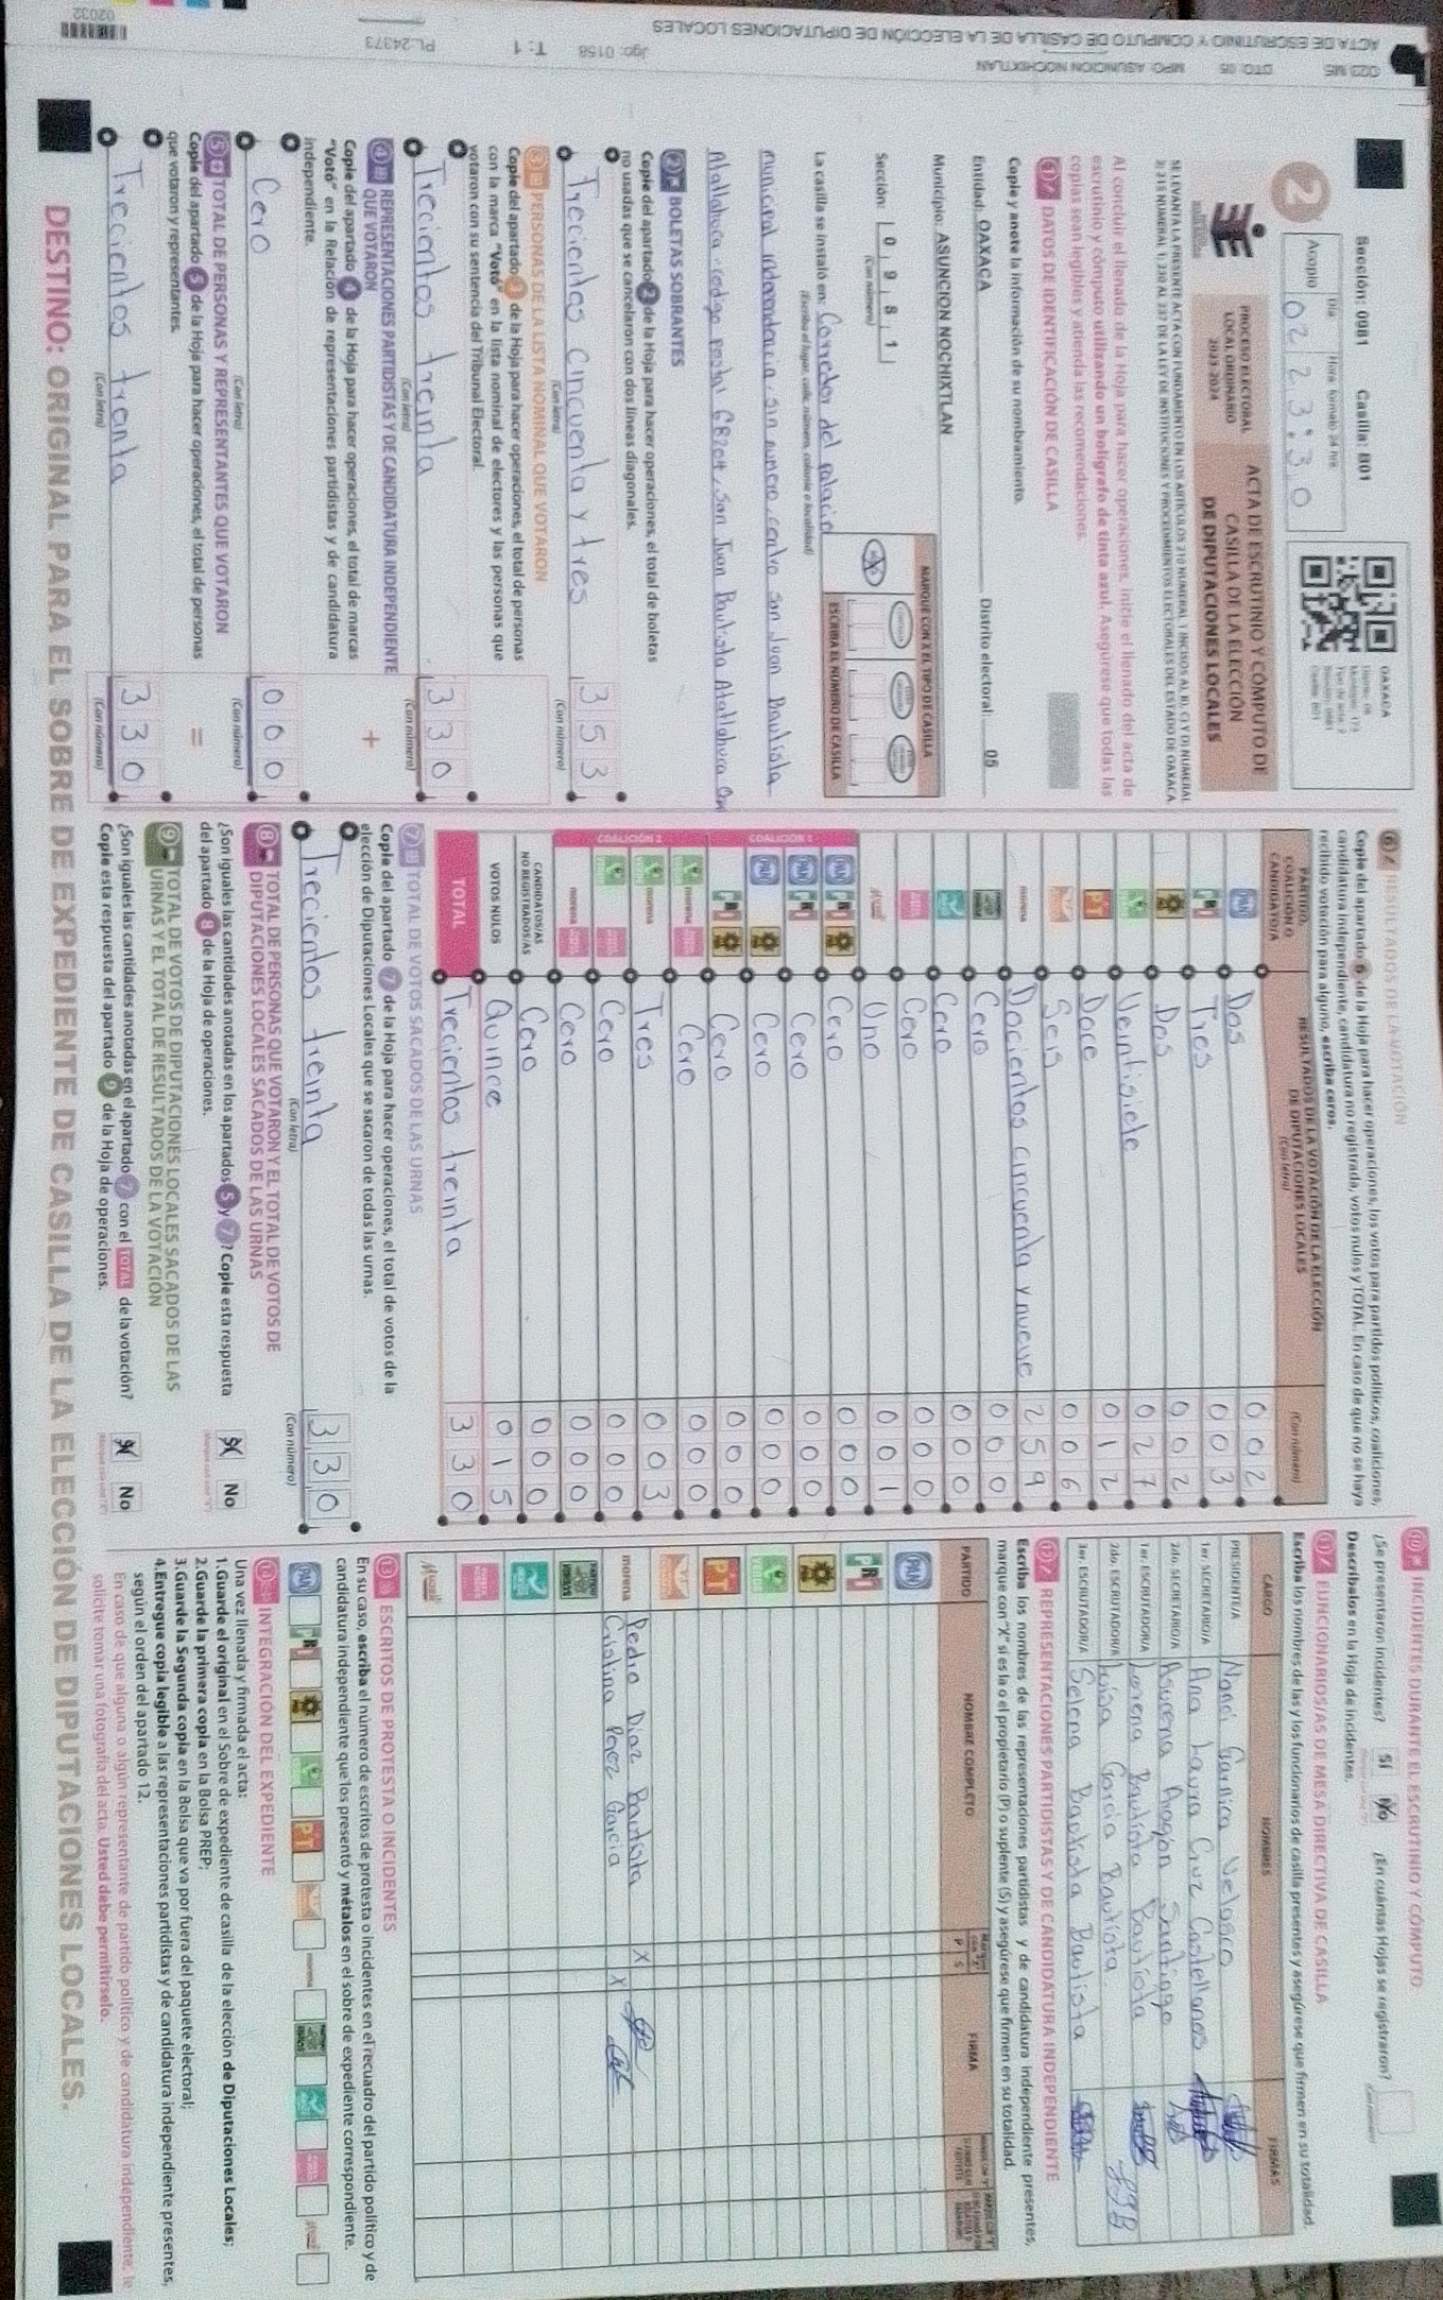 Sección: 0981 Casilla: B01
2
Día Hora formato 24 hrs.
Acopio 02 23:30
OAXACA
PROCESO ELECTORAL
LOCAL ORDINARIO
2023-2024
ACTA DE ESCRUTINIO Y CÓMPUTO DE
CASILLA DE LA ELECCIÓN
DE DIPUTACIONES LOCALES
Al concluir el llenado de la Hoja para hacer operaciones, inicie el llenado del acta de
escrutinio y cómputo utilizando un bolígrafo de tinta azul. Asegúrese que todas las
copias sean legibles y atienda las recomendaciones.
1 DATOS DE IDENTIFICACIÓN DE CASILLA
Copie y anote la información de su nombramiento.
Entidad: OAXACA Distrito electoral: 05
Municipio: ASUNCION NOCHIXTLAN
Sección: 0 9 8 1
(Con número)
MARQUE CON X EL TIPO DE CASILLA
ESCRIBA EL NÚMERO DE CASILLA
La casilla se instaló en: Corredor del palacio
(Escriba el lugar, calle, número, colonia o localidad)
municipal independencia, sin numero, centro san Juan Bautista
Atatlahuca codigo postal 68204, San Juan Bautista Atatlahuca
2 BOLETAS SOBRANTES
Copie del apartado 2 de la Hoja para hacer operaciones, el total de boletas
no usadas que se cancelaron con dos líneas diagonales.
Trecientos cincuenta y tres 353
(Con letra) (Con número)
3 PERSONAS DE LA LISTA NOMINAL QUE VOTARON
Copie del apartado 3 de la Hoja para hacer operaciones, el total de personas
con la marca "Votó" en la lista nominal de electores y las personas que
votaron con su sentencia del Tribunal Electoral.
Trecientos treinta 330
(Con letra) (Con número)
4 REPRESENTACIONES PARTIDISTAS Y DE CANDIDATURA INDEPENDIENTE
QUE VOTARON
Copie del apartado 4 de la Hoja para hacer operaciones, el total de marcas
"Votó" en la Relación de representaciones partidistas y de candidatura
independiente.
+
Cero 000
(Con letra) (Con número)
5 TOTAL DE PERSONAS Y REPRESENTANTES QUE VOTARON
Copie del apartado 5 de la Hoja para hacer operaciones, el total de personas
que votaron y representantes.
=
Trecientos treinta 330
(Con letra) (Con número)
6 RESULTADOS DE LA VOTACIÓN
Copie del apartado 6 de la Hoja para hacer operaciones, los votos para partidos políticos, coaliciones,
candidatura independiente, candidatura no registrada, votos nulos y TOTAL. En caso de que no se haya
recibido votación para alguno, escriba ceros.
PARTIDO, COALICIÓN O CANDIDATO/A
RESULTADOS DE LA VOTACIÓN DE LA ELECCIÓN
DE DIPUTACIONES LOCALES
(Con letra) (Con número)
PAN Dos 002
PRI Tres 003
PRD Dos 002
VERDE Veintisiete 027
PT Doce 012
Seis 006
morena Docientos cincuenta y nueve 259
Cero 000
Cero 000
Cero 000
Uno 001
COALICIÓN 1
PAN PRI PRD Cero 000
PAN PRI Cero 000
PAN PRD Cero 000
PRI PRD Cero 000
COALICIÓN 2
VERDE morena Cero 000
VERDE morena Tres 003
VERDE Cero 000
morena Cero 000
CANDIDATOS/AS
NO REGISTRADOS/AS Cero 000
VOTOS NULOS Quince 015
TOTAL Trecientos treinta 330
7 TOTAL DE VOTOS SACADOS DE LAS URNAS
Copie del apartado 7 de la Hoja para hacer operaciones, el total de votos de la
elección de Diputaciones Locales que se sacaron de todas las urnas.
Trecientos treinta 330
(Con letra) (Con número)
8 TOTAL DE PERSONAS QUE VOTARON Y EL TOTAL DE VOTOS DE
DIPUTACIONES LOCALES SACADOS DE LAS URNAS
¿Son iguales las cantidades anotadas en los apartados 5 y 7? Copie esta respuesta
del apartado 8 de la Hoja de operaciones.
Sí No
9 TOTAL DE VOTOS DE DIPUTACIONES LOCALES SACADOS DE LAS
URNAS Y EL TOTAL DE RESULTADOS DE LA VOTACIÓN
¿Son iguales las cantidades anotadas en el apartado 7 con el TOTAL de la votación?
Copie esta respuesta del apartado 9 de la Hoja de operaciones.
Sí No
10 INCIDENTES DURANTE EL ESCRUTINIO Y CÓMPUTO
¿Se presentaron incidentes? Sí No ¿En cuántas Hojas se registraron?
Descríbalos en la Hoja de incidentes.
11 FUNCIONARIOS/AS DE MESA DIRECTIVA DE CASILLA
Escriba los nombres de las y los funcionarios de casilla presentes y asegúrese que firmen en su totalidad.
CARGO NOMBRES FIRMAS
PRESIDENTE/A Nanci Garnica Velasco
1er. SECRETARIO/A Ana Laura Cruz Castellanos
2do. SECRETARIO/A Asucena Aragon Santiago
1er. ESCRUTADOR/A Lorena Bautista Bautista
2do. ESCRUTADOR/A Luisa Garcia Bautista
3er. ESCRUTADOR/A Selena Bautista Bautista
12 REPRESENTACIONES PARTIDISTAS Y DE CANDIDATURA INDEPENDIENTE
Escriba los nombres de las representaciones partidistas y de candidatura independiente presentes,
marque con "X" si es la o el propietario (P) o suplente (S) y asegúrese que firmen en su totalidad.
PARTIDO NOMBRE COMPLETO P S FIRMA
PAN
PRI
PRD
VERDE
PT
morena Pedro Diaz Bautista X
Cristina Perez Garcia X
13 ESCRITOS DE PROTESTA O INCIDENTES
En su caso, escriba el número de escritos de protesta o incidentes en el recuadro del partido político y de
candidatura independiente que los presentó y métalos en el sobre de expediente correspondiente.
PAN PRI PRD VERDE PT morena
14 INTEGRACIÓN DEL EXPEDIENTE
Una vez llenada y firmada el acta:
1.Guarde el original en el Sobre de expediente de casilla de la elección de Diputaciones Locales;
2.Guarde la primera copia en la Bolsa PREP;
3.Guarde la Segunda copia en la Bolsa que va por fuera del paquete electoral;
4.Entregue copia legible a las representaciones partidistas y de candidatura independiente presentes,
según el orden del apartado 12.
En caso de que alguna o algún representante de partido político y de candidatura independiente, le
solicite tomar una fotografía del acta. Usted debe permitírselo.
DESTINO: ORIGINAL PARA EL SOBRE DE EXPEDIENTE DE CASILLA DE LA ELECCIÓN DE DIPUTACIONES LOCALES.
DTO: 05 MPO: ASUNCION NOCHIXTLAN
ACTA DE ESCRUTINIO Y COMPUTO DE CASILLA DE LA ELECCIÓN DE DIPUTACIONES LOCALES
Jgo: 0158 T: 1 PL:24373
02032